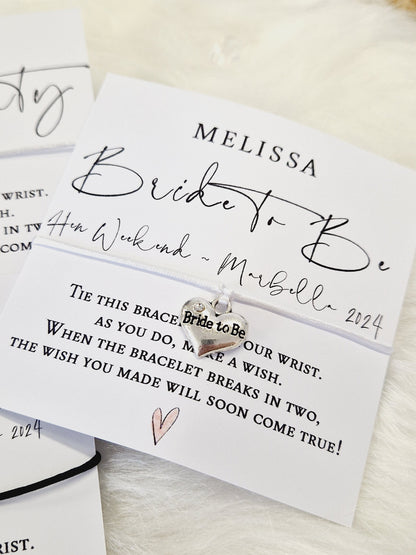 MELISSA
Bride To Be
Hen Weekend ~ Marbella 2024
TIE THIS BRACE
OUR WRIST.
Bride to Be
AS YOU DO, M
E A WISH.
WHEN THE BRACELET BREAKS IN TWO,
THE WISH YOU MADE WILL SOON COME TRUE!
WRIST.
SH.
IN TW
COM
2024
RIST.